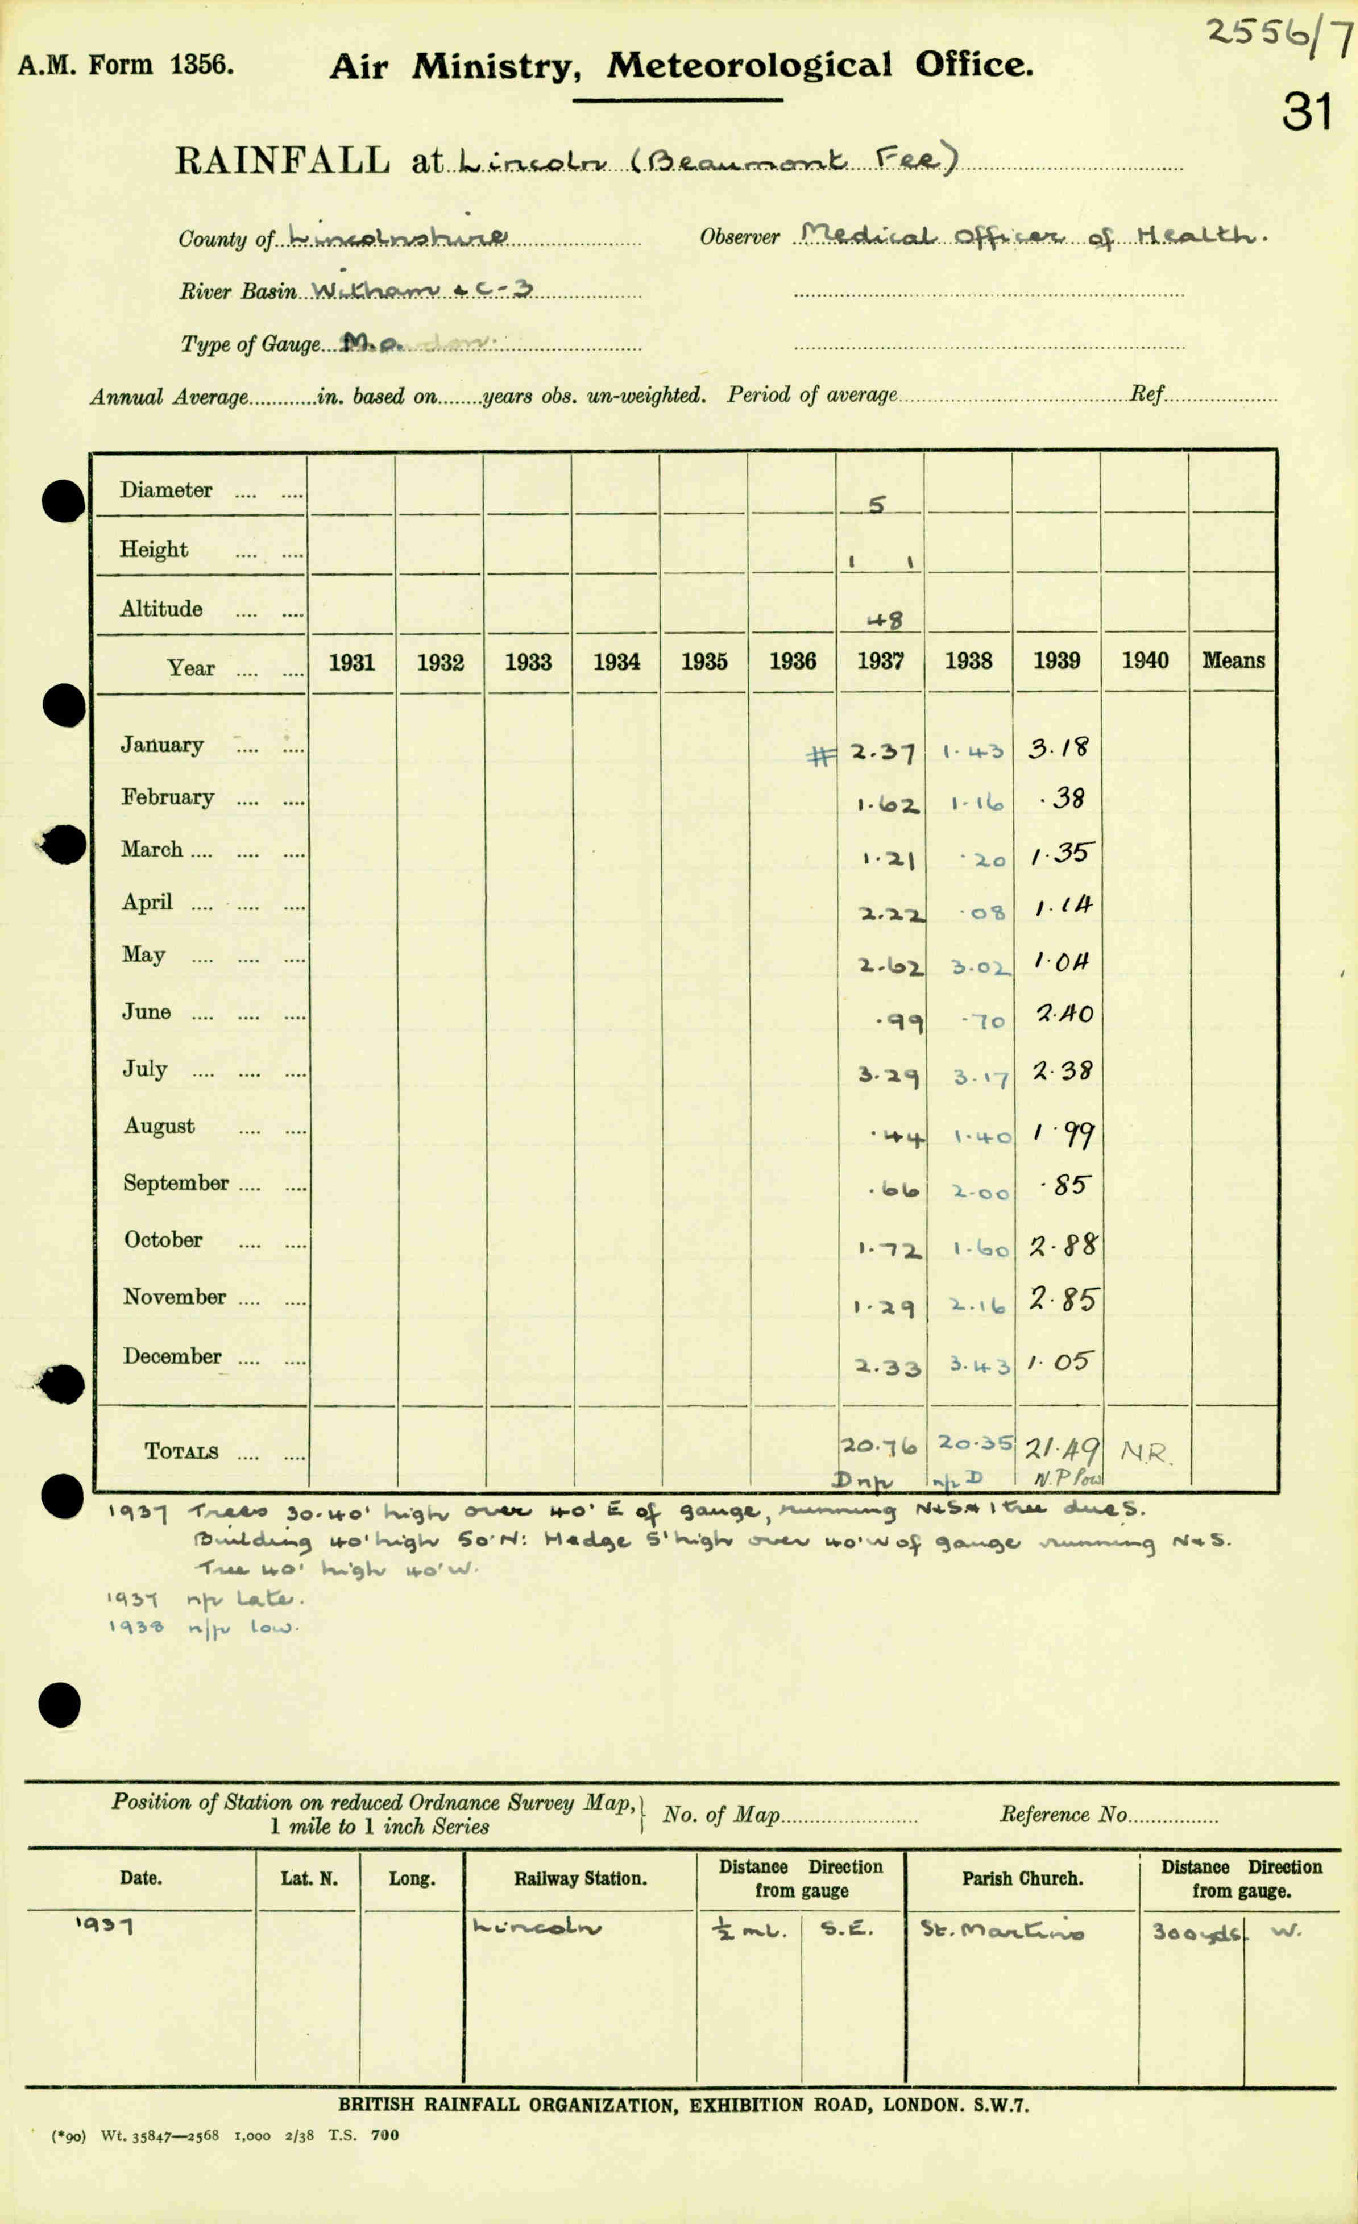 2556/7
A.M. Form 1356. Air Ministry, Meteorological Office.
31
RAINFALL at Lincoln (Beaumont Fee)
County of Lincolnshire Observer Medical Officer of Health.
River Basin Witham & C-3
Type of Gauge M.O.
Annual Average............in. based on........years obs. un-weighted. Period of average............Ref............
Diameter .... .... 5
Height .... .... 1 1
Altitude .... .... 48
Year .... .... 1931 1932 1933 1934 1935 1936 1937 1938 1939 1940 Means
January .... .... # 2.37 1.43 3.18
February .... .... 1.62 1.16 .38
March .... .... .... 1.21 .20 1.35
April .... .... .... 2.22 .08 1.14
May .... .... .... 2.62 3.02 1.04
June .... .... .... .99 .70 2.40
July .... .... .... 3.29 3.17 2.38
August .... .... .44 1.40 1.99
September .... .... .66 2.00 .85
October .... .... 1.72 1.60 2.88
November .... .... 1.29 2.16 2.85
December .... .... 2.33 3.43 1.05
TOTALS .... .... 20.76 20.35 21.49 N.R.
D np np D N.P low
1937 Trees 30-40' high over 40' E of gauge, running N&S & 1 tree due S.
Building 40' high 50' N: Hedge 5' high over 40' W of gauge running N&S.
Tree 40' high 40' W.
1937 np Late.
1938 n/p low.
Position of Station on reduced Ordnance Survey Map, 1 mile to 1 inch Series } No. of Map............ Reference No............
Date. Lat. N. Long. Railway Station. Distance Direction from gauge Parish Church. Distance Direction from gauge.
1937 Lincoln ½ ml. S.E. St. Martins 300 yds. W.
BRITISH RAINFALL ORGANIZATION, EXHIBITION ROAD, LONDON. S.W.7.
(*90) Wt. 35847—2568 1,000 2/38 T.S. 700